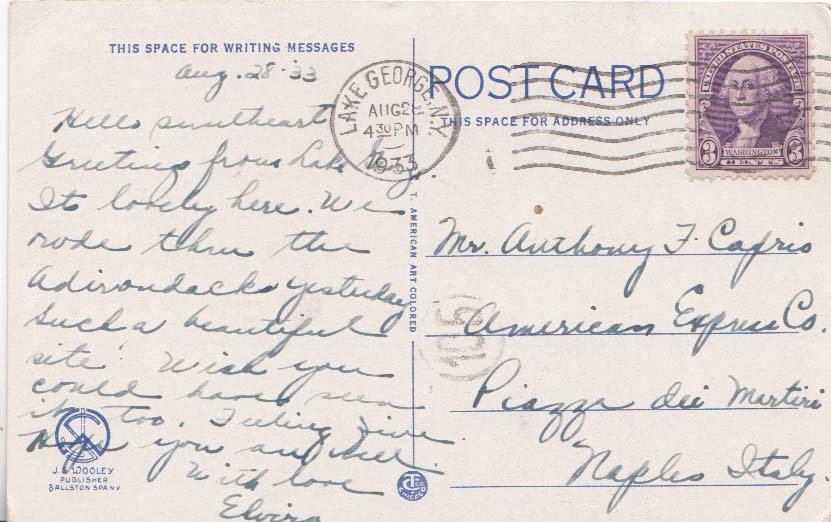 THIS SPACE FOR WRITING MESSAGES
Aug. 28-33
Hello sweetheart
Greetings from Lake Geo.
Its lovely here. We
rode thru the
Adirondacks yesterday
Such a beautiful
site. Wish you
could have seen
it too. Feeling fine
Hope you are well.
With love
Elvira
J.S. WOOLEY
PUBLISHER
BALLSTON SPA NY
C.T. AMERICAN ART COLORED
CHICAGO
LAKE GEORGE, N.Y.
AUG 28
4 30 PM
1933
POST CARD
THIS SPACE FOR ADDRESS ONLY
UNITED STATES POSTAGE
WASHINGTON
3 CENTS 3
Mr. Anthony F. Caprio
American Express Co.
Piazza dei Martiri
Naples Italy.
105